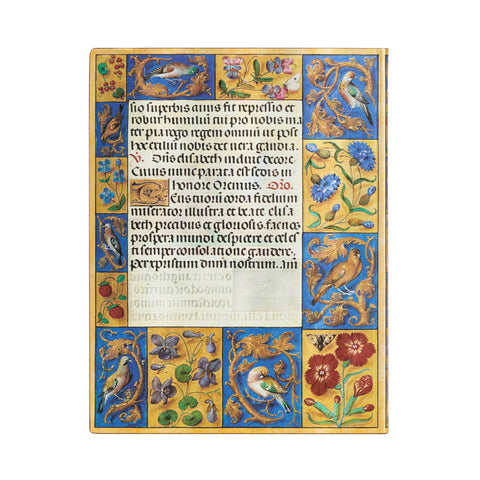 sio superbis cuius fit repressio et
robur humiliu pro nobis ma
ter pia rogo regem omniu ut post
hoc exiliu nobis det vera gaudia.
V. elisabeth decore
Cuius nunc parata est sedis in
honore Oremus. Oro.
Deus tuorū corda fidelium
miserator illustra et beate elisa
beth precibus et gloriosis. fac nos
prospera mundi despicere et celes
ti semper consolatione gaudere.
per xpistum dnm nostrum. Am